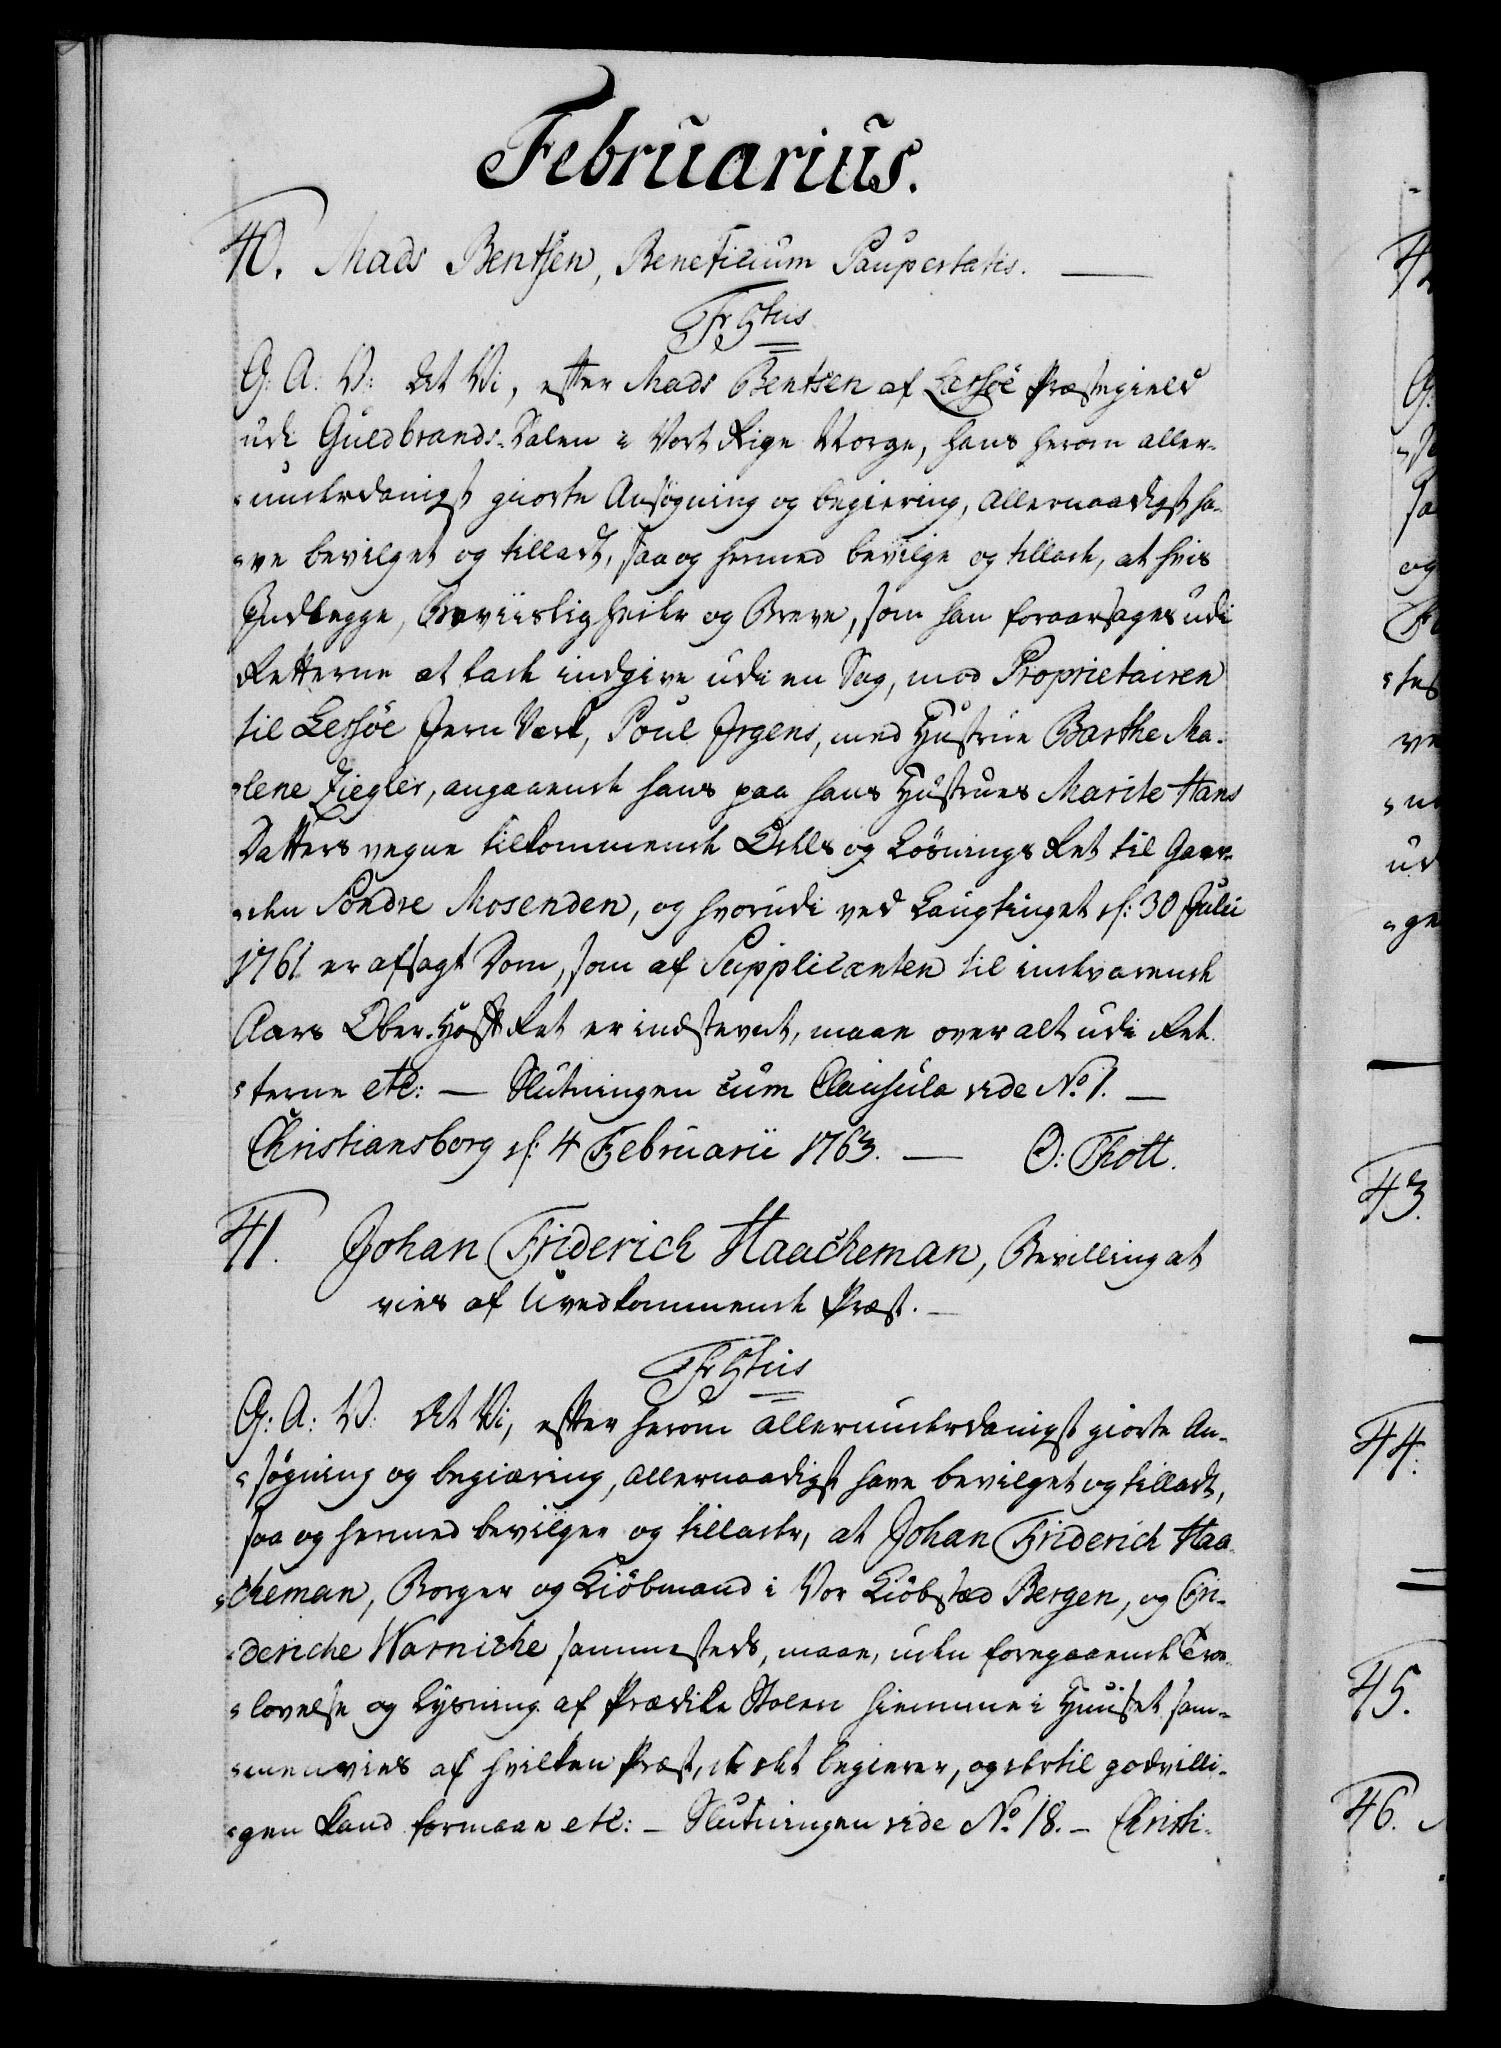 Februarius.
40. Mads Bentsen, Beneficium Paupertatis. —
Fr: 5tus
G: A: V: At Vi, efter Mads Bentsen af Lessöe Præstegield
udi Guldbrands-Dalen i Vort Rige Norge, hans herom aller-
underdanigst giorte Ansøgning og begiering, allernaadigst ha-
ve bevilget og tilladt, saa og hermed bevilge og tillade, at hvis
Indlegge, Beviislig heder og Breve, som han foraarsages udi
Retterne at lade indgive udi en Sag, mod Proprietairen
til Lessöe Jern Verk, Poul Irgens, med Hustrue Barthe Ma-
lene Ziegler, angaaende hans paa hans Hustrues Marite Hans
Datters vegne tilkommende Odels og Løsnings Ret til Gaar-
den Söndre Mosenden, og hvorudi ved Laugtinget d: 30 Julii
1761 er afsagt Dom, som af Supplicanten til indeværende
Aars Ober-Hof Ret er indstevnet, maae over alt udi Ret-
terne etc: — Slutningen cum Clausula vide No. 1. —
Christiansborg d: 4 Februarii 1763. — O: Thott.
41. Johan Friderich Haacheman, Bevilling at
vies af Uvedkommende Præst. —
Fr: 5tus
G: A: V: At Vi, efter herom allerunderdanigst giorte An-
søgning og begiæring, allernaadigst have bevilget og tilladt,
saa og hermed bevilger og tillader, at Johan Friderich Haa-
cheman, Borger og Kiöbmand i Vor Kiöbstæd Bergen, og Fri-
deriche Warniche sammesteds, maae, uden foregaaende Troe-
lovelse og Lysning af Prædike Stolen hiemme i Huuset sam-
menvies af hvilken Præst, de det begierer, og dertil godvilli-
gen kand formaae etc: — Slutningen vide No. 18. — Christi-
43.
44.
45.
46.